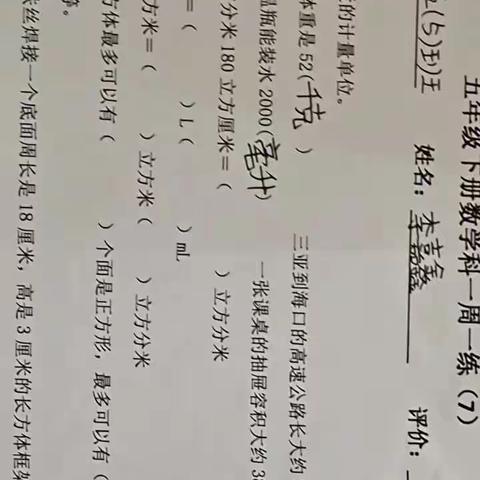 五年级下册数学科一周一练（7）
(5)班 姓名：李嘉鑫 评价：
的计量单位。
体重是 52(千克) 三亚到海口的高速公路长大约
温瓶能装水 2000(毫升) 一张课桌的抽屉容积大约 3
分米 180 立方厘米＝（ ）立方分米
＝（ ）L（ ）mL
方米＝（ ）立方米（ ）立方分米
方体最多可以有（ ）个面是正方形，最多可以有（
等。
丝焊接一个底面周长是 18 厘米，高是 3 厘米的长方体框架